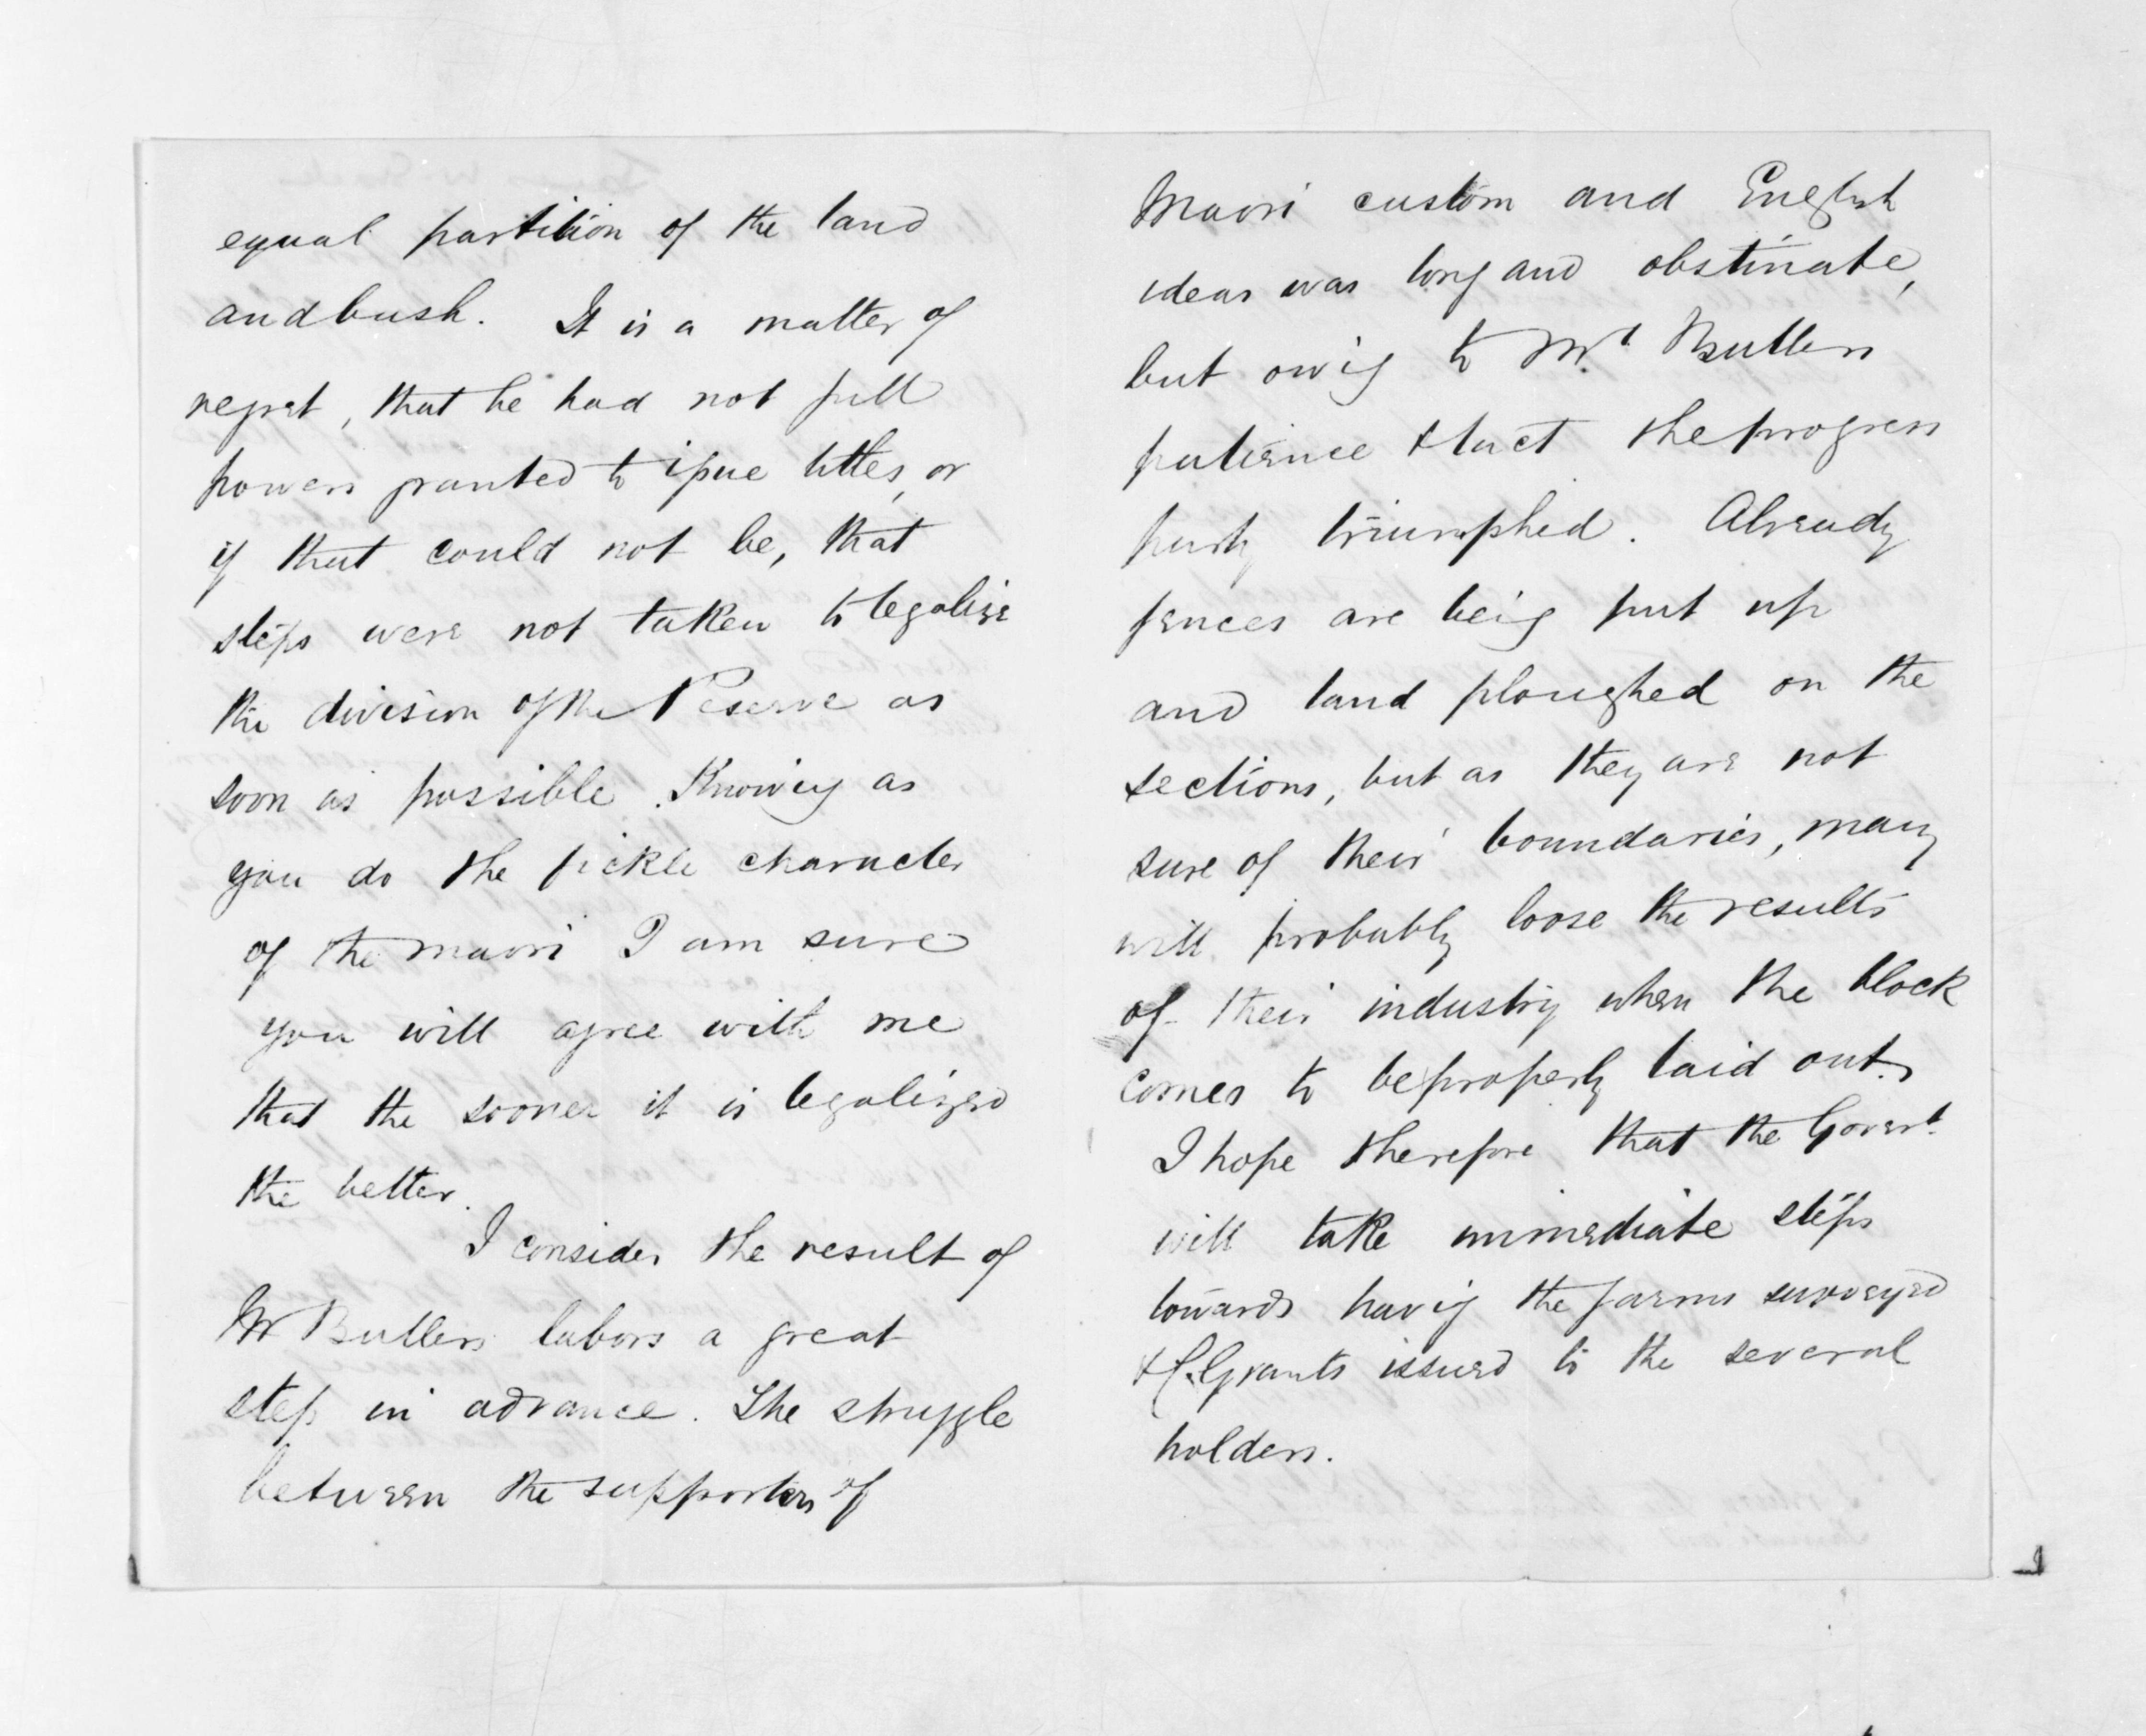 equal partition of the land
and bush. It is a matter of
regret, that he had not full
powers granted to issue titles, or
if that could not be, that
steps were not taken to legalise
the division of the Reserve as
soon as possible. Knowing as
you do the fickle character
of the maori I am sure
you will agree with me
that the sooner it is legalized
the better.
I consider the result of
Mr Bullers labors a great
step in advance. The struggle
between the supporters of
Maori custom and English
ideas was long and obstinate,
but owing to Mr. Bullers
patience & tact the progress
party triumphed. Already
fences are being put up
and land ploughed on the
sections, but as they are not
sure of their boundaries, many
will probably loose the results
of their industry when the block
comes to be properly laid out.
I hope therefore that the Govert.
will take immediate steps
towards having the farms surveyed
& C. Grants issued to the several
holders.